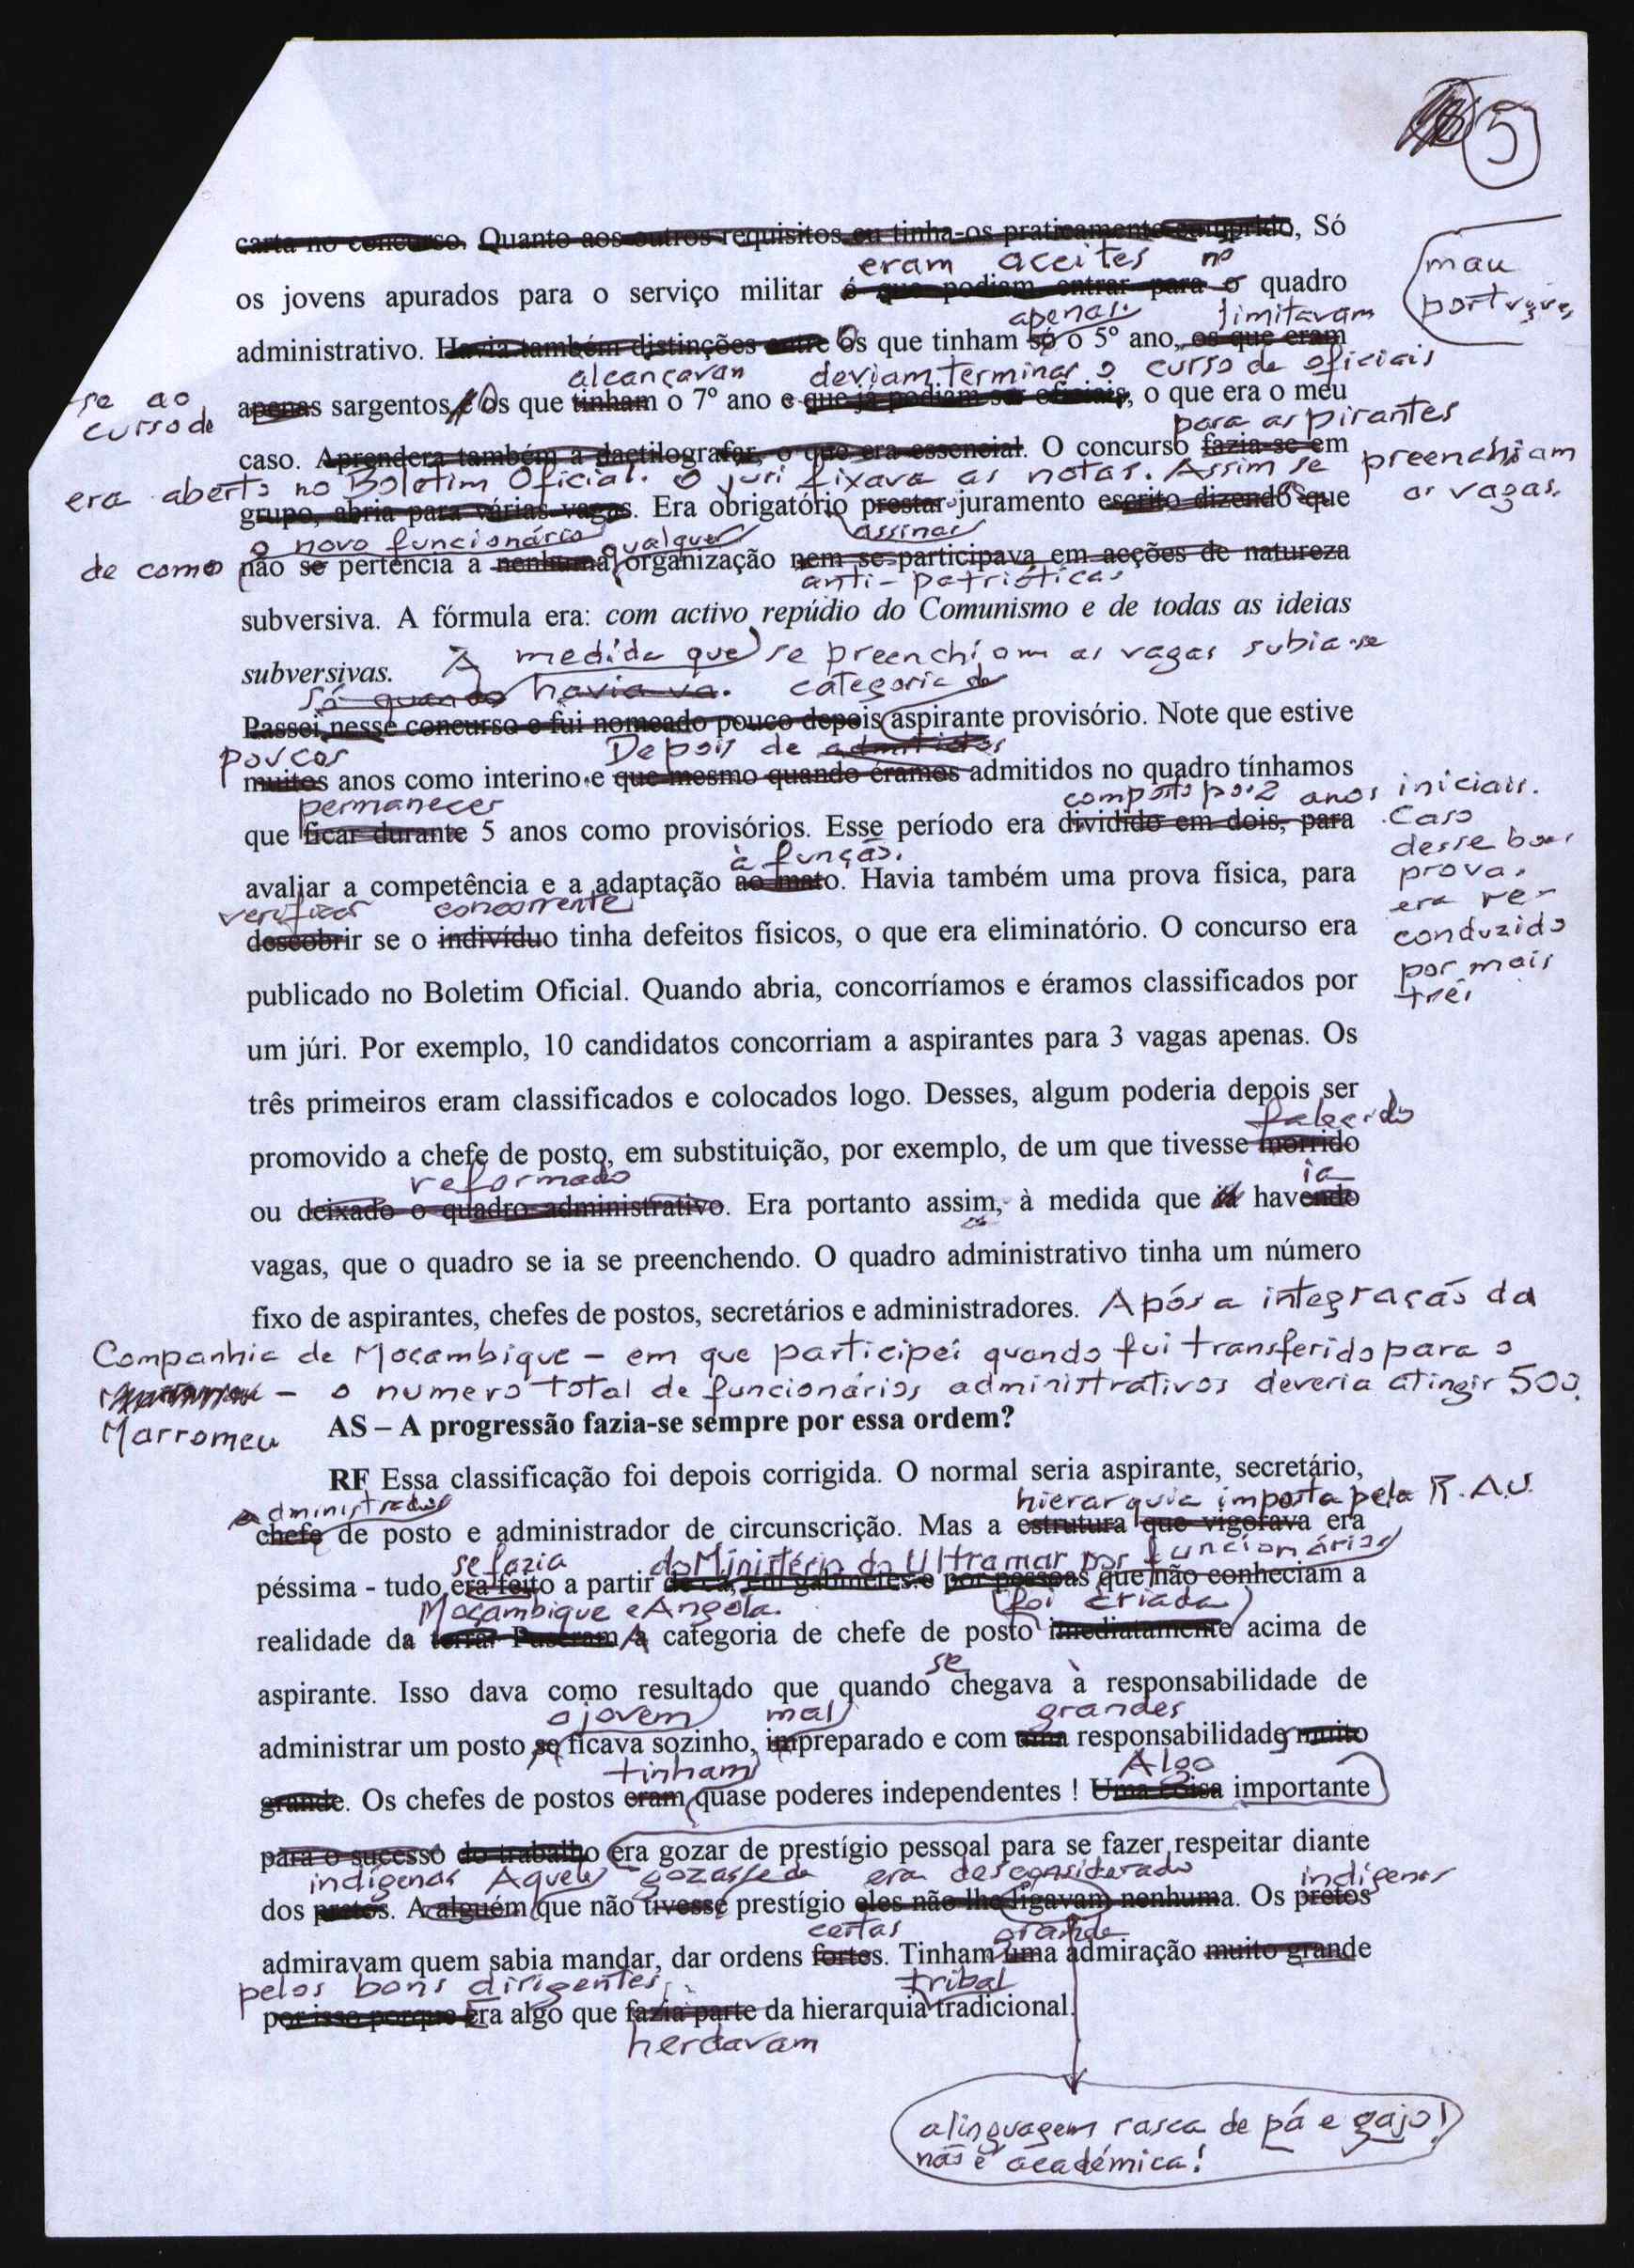 5
carta no concurso. Quanto aos outros requisitos eu tinha-os praticamente cumprido, Só
eram aceites no
mau
português
os jovens apurados para o serviço militar é que podiam entrar para o quadro
apenas limitavam
administrativo. Havia também distinções entre Os que tinham só o 5º ano, os que eram
-se ao
curso de
alcançavam deviam terminar o curso de oficiais
apenas sargentos, e Os que tinham o 7º ano e que já podiam ser oficiais, o que era o meu
para aspirantes
caso. Aprendera também a dactilografar, o que era essencial. O concurso fazia-se em
era aberto no Boletim Oficial. O juri fixava as notas. Assim se preenchiam
as vagas.
grupo, abria para várias vagas. Era obrigatório prestar juramento escrito dizendo que
o novo funcionário qualquer assinar
de como não se pertencia a nenhuma organização nem se participava em acções de natureza
anti-patrióticas
subversiva. A fórmula era: com activo repúdio do Comunismo e de todas as ideias
subversivas. À medida que se preenchiam as vagas subia-se
só quando havia va. categoria de
Passei nesse concurso e fui nomeado pouco depois aspirante provisório. Note que estive
poucos Depois de admitidos
muitos anos como interino e que mesmo quando éramos admitidos no quadro tínhamos
permanecer composto por 2 anos iniciais.
que ficar durante 5 anos como provisórios. Esse período era dividido em dois, para
Caso
desse boas
prova,
era re-
conduzido
por mais
três
à função.
avaliar a competência e a adaptação ao mato. Havia também uma prova física, para
verificar concorrente
descobrir se o indivíduo tinha defeitos físicos, o que era eliminatório. O concurso era
publicado no Boletim Oficial. Quando abria, concorríamos e éramos classificados por
um júri. Por exemplo, 10 candidatos concorriam a aspirantes para 3 vagas apenas. Os
três primeiros eram classificados e colocados logo. Desses, algum poderia depois ser
falecido
promovido a chefe de posto, em substituição, por exemplo, de um que tivesse morrido
reformado ia
ou deixado o quadro administrativo. Era portanto assim, à medida que havendo
vagas, que o quadro se ia se preenchendo. O quadro administrativo tinha um número
fixo de aspirantes, chefes de postos, secretários e administradores. Após a integração da
Companhia de Moçambique – em que participei quando fui transferido para o
Marromeu
– o numero total de funcionários administrativos deveria atingir 500.
AS – A progressão fazia-se sempre por essa ordem?
RF Essa classificação foi depois corrigida. O normal seria aspirante, secretário,
administrador hierarquia imposta pela R.A.U.
chefe de posto e administrador de circunscrição. Mas a estrutura que vigorava era
se fazia do Ministério do Ultramar por funcionários
péssima - tudo era feito a partir de cá, em gabinetes e por pessoas que não conheciam a
Moçambique e Angola. foi criada
realidade da terra. Puseram A categoria de chefe de posto imediatamente acima de
se
aspirante. Isso dava como resultado que quando chegava à responsabilidade de
o jovem mal grandes
administrar um posto se ficava sozinho, impreparado e com uma responsabilidade muito
tinham Algo
grande. Os chefes de postos eram quase poderes independentes ! Uma coisa importante
para o sucesso do trabalho era gozar de prestígio pessoal para se fazer respeitar diante
indígenas Aquele gozasse de era desconsiderado indígenas
dos pretos. A alguém que não tivesse prestígio eles não lhe ligavam nenhuma. Os pretos
certas grande
admiravam quem sabia mandar, dar ordens fortes. Tinham uma admiração muito grande
pelos bons dirigentes, tribal
por isso porque Era algo que fazia parte da hierarquia tradicional.
herdavam
a linguagem rasca de pá e gajo!
não é académica!